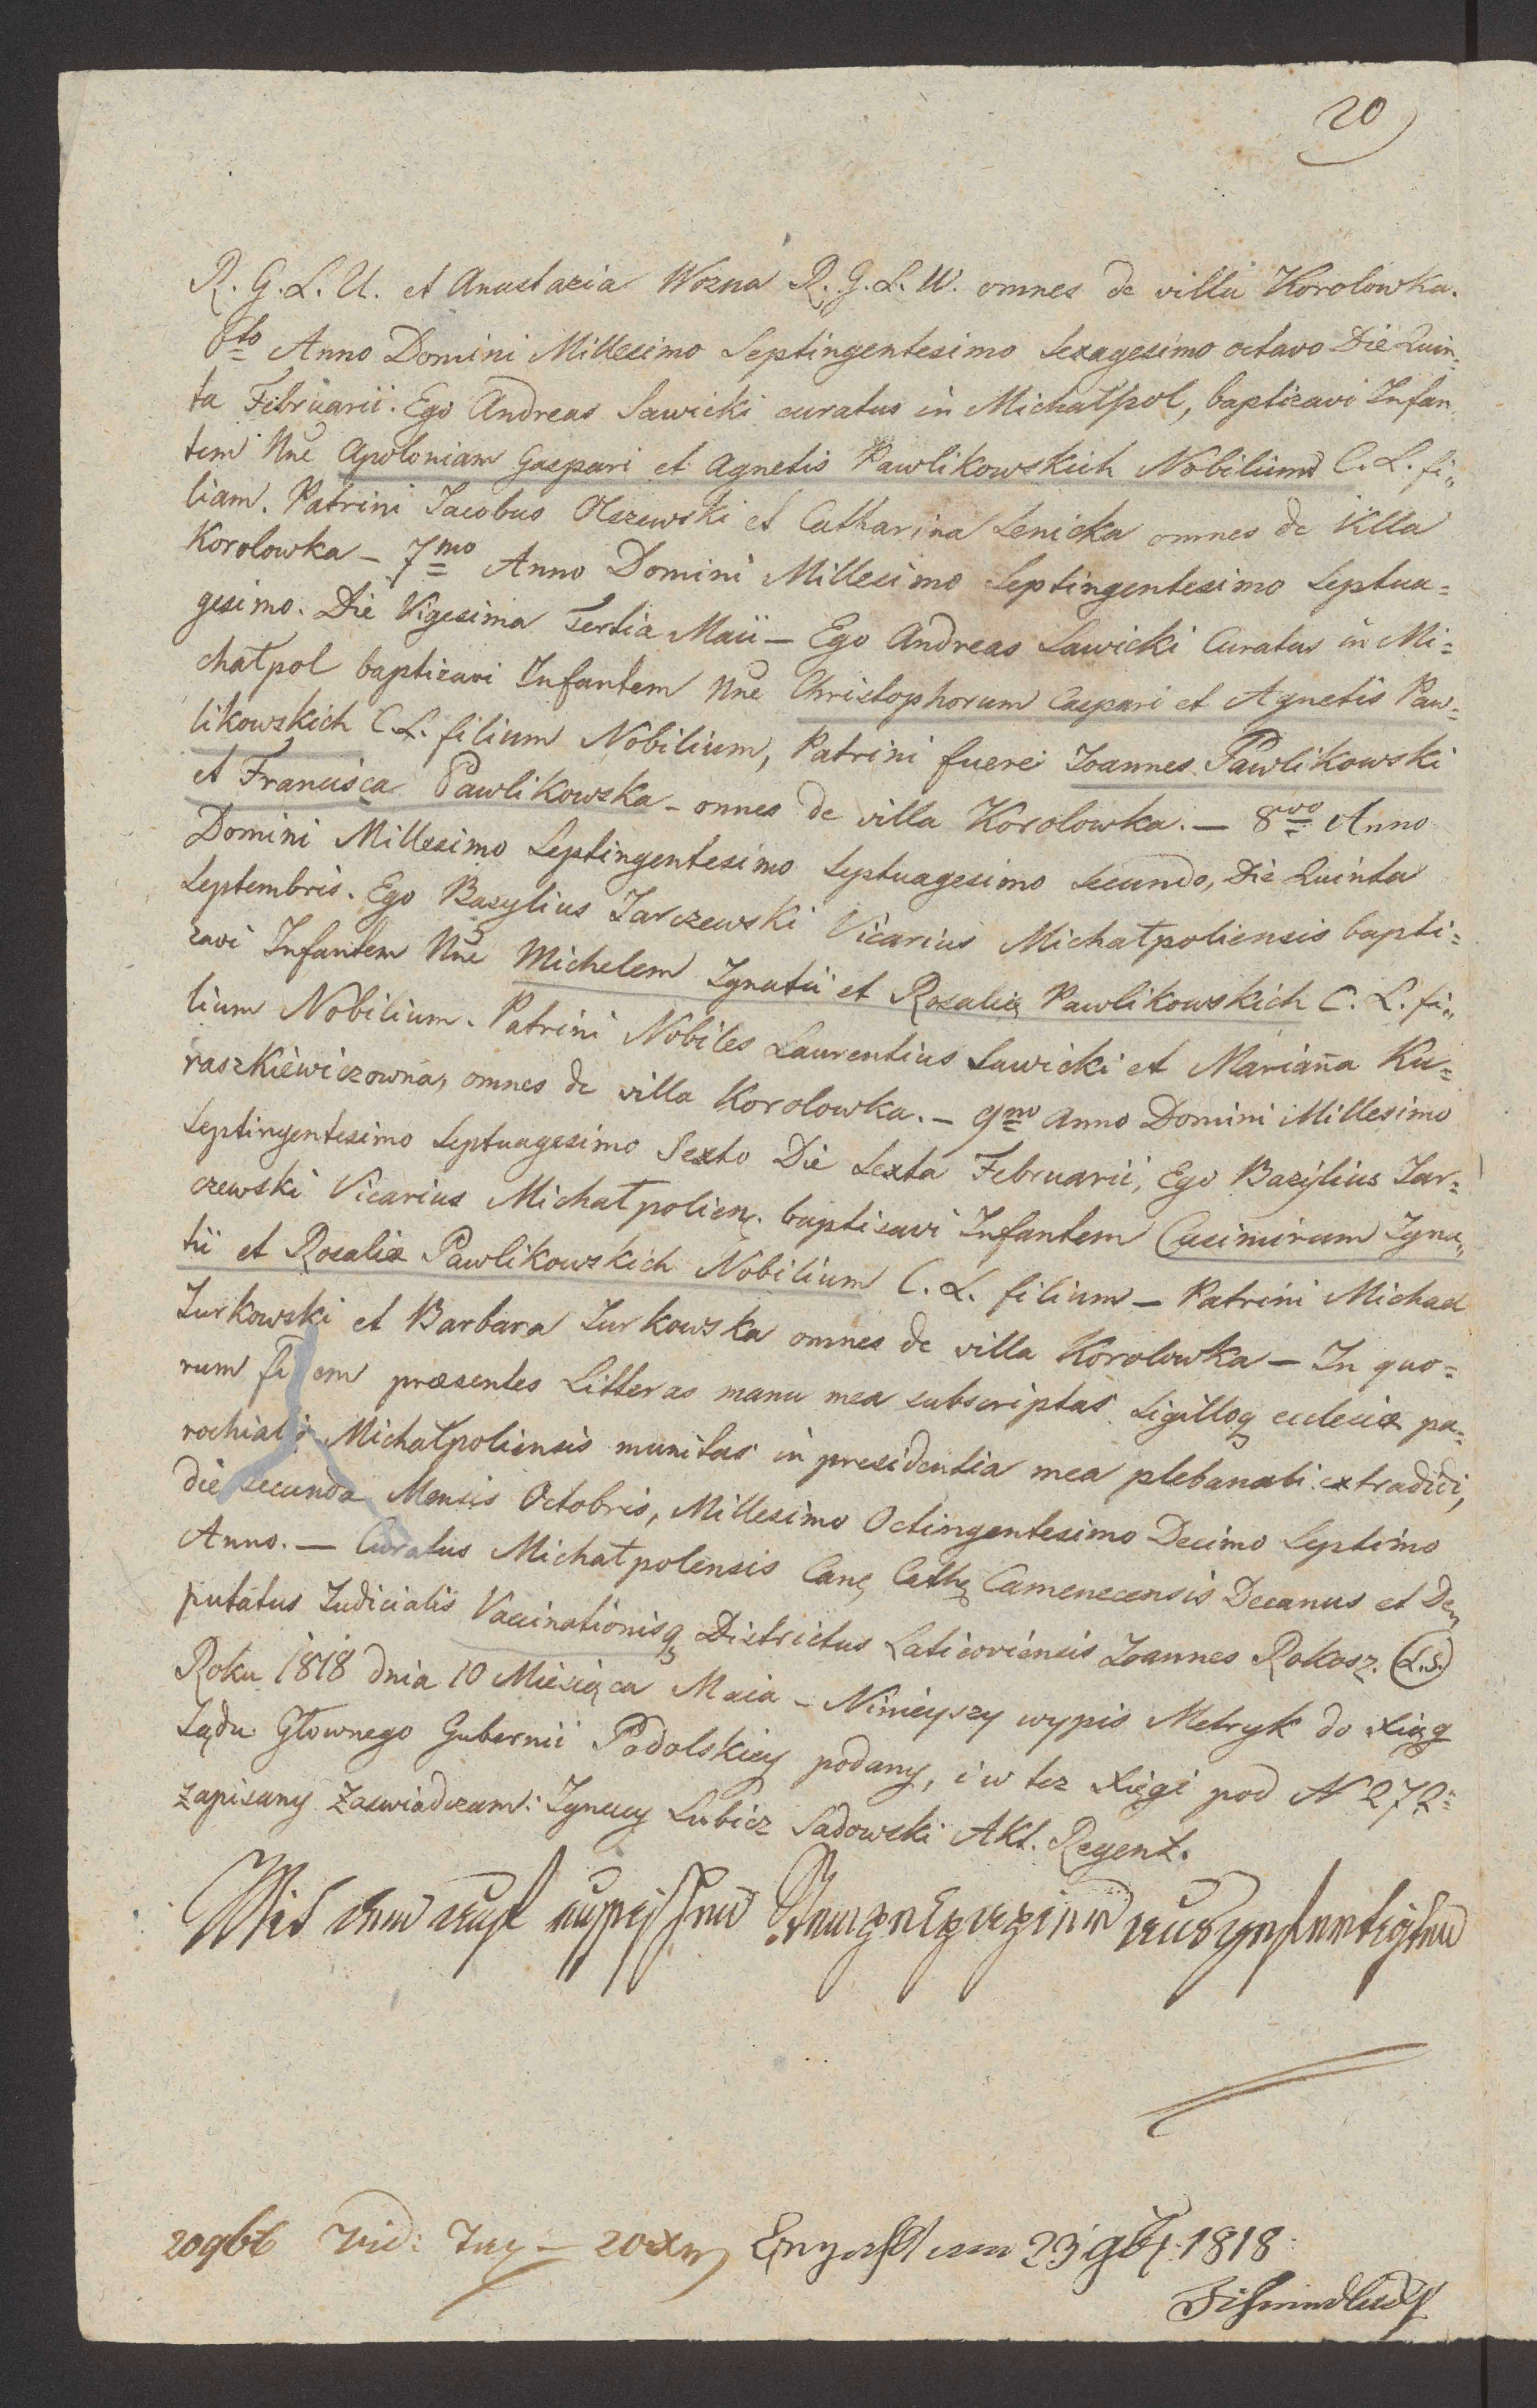 20
R. G. L. U. et Anastazia Wozna R. G. L. U. omnes de villa Korolowka.
6to Anno Domini Millesimo Septingentesimo Sexagesimo octavo Die Quin=
ta Februarii. Ego Andreas Sawicki curatus in Michałpol, baptizavi Infan
tem Nne Apoloniam Gaspari et Agnetis Pawlikowskich Nobilium C. L. fi„
liam. Patrini Jacobus Olszewski et Catharina Senicka omnes de Villa
Korolowka – 7mo Anno Domini Millesimo Septingentesimo Septua=
gesimo. Die Vigesima Tertia Maii – Ego Andreas Sawicki Curatus in Mi=
chałpol baptizavi Infantem Nne Christophorum Caspari et Agnetis Paw=
likowskich C. L. filium Nobilium, Patrini fuere Joannes Pawlikowski
et Francisca Pawlikowska – omnes de villa Korolowka. – 8vo Anno
Domini Millesimo Septingentesimo Septuagesimo Secundo, Die Quinta
Septembris. Ego Bazylius Jarczewski Vicarius Michałpoliensis bapti=
zavi Infantem Nne Michelem Ignatii et Rosaliæ Pawlikowskich C. L. fi„
lium Nobilium. Patrini Nobiles Laurentius Sawicki et Marianna Ku=
raszkiewiczowna, omnes de villa Korolowka. – 9no Anno Domini Millesimo
Septingentesimo Septuagesimo Sexto Die Sexta Februarii, Ego Bazylius Jar=
czewski Vicarius Michałpolien. baptisavi Infantem Casimirum Igna„
tii et Rosaliæ Pawlikowskich Nobilium C. L. filium – Patrini Michael
Turkowski et Barbara Turkowska omnes de villa Korolowka – In quo=
rum fidem præsentes Litteras manu mea subscriptas Sigilloq ecclesiæ pa=
rochialis Michałpoliensis munitas in presidentia mea plebanali extradidi,
die secunda Mensis Octobris, Millesimo Octingentesimo Decimo Septimo
Anno. – Curatus Michałpolensis Can. Cath. Camenecensis Decanus et De„
putatus Judicialis Vaccinationisq Districtus Laticoviensis Joannes Rokosz. (L.S.)
Roku 1818 dnia 10 Miesiąca Maia – Ninieyszy wypis Metryk do Xiąg
Sądu Głownego Gubernii Podolskiey podany, i w tez Xięgi pod N 272
zapisany zaswiadczam: Ignacy Lubicz Sadowski Akt. Regent.
Mit dem
20 9bb Vid:
am 23 9b 1818